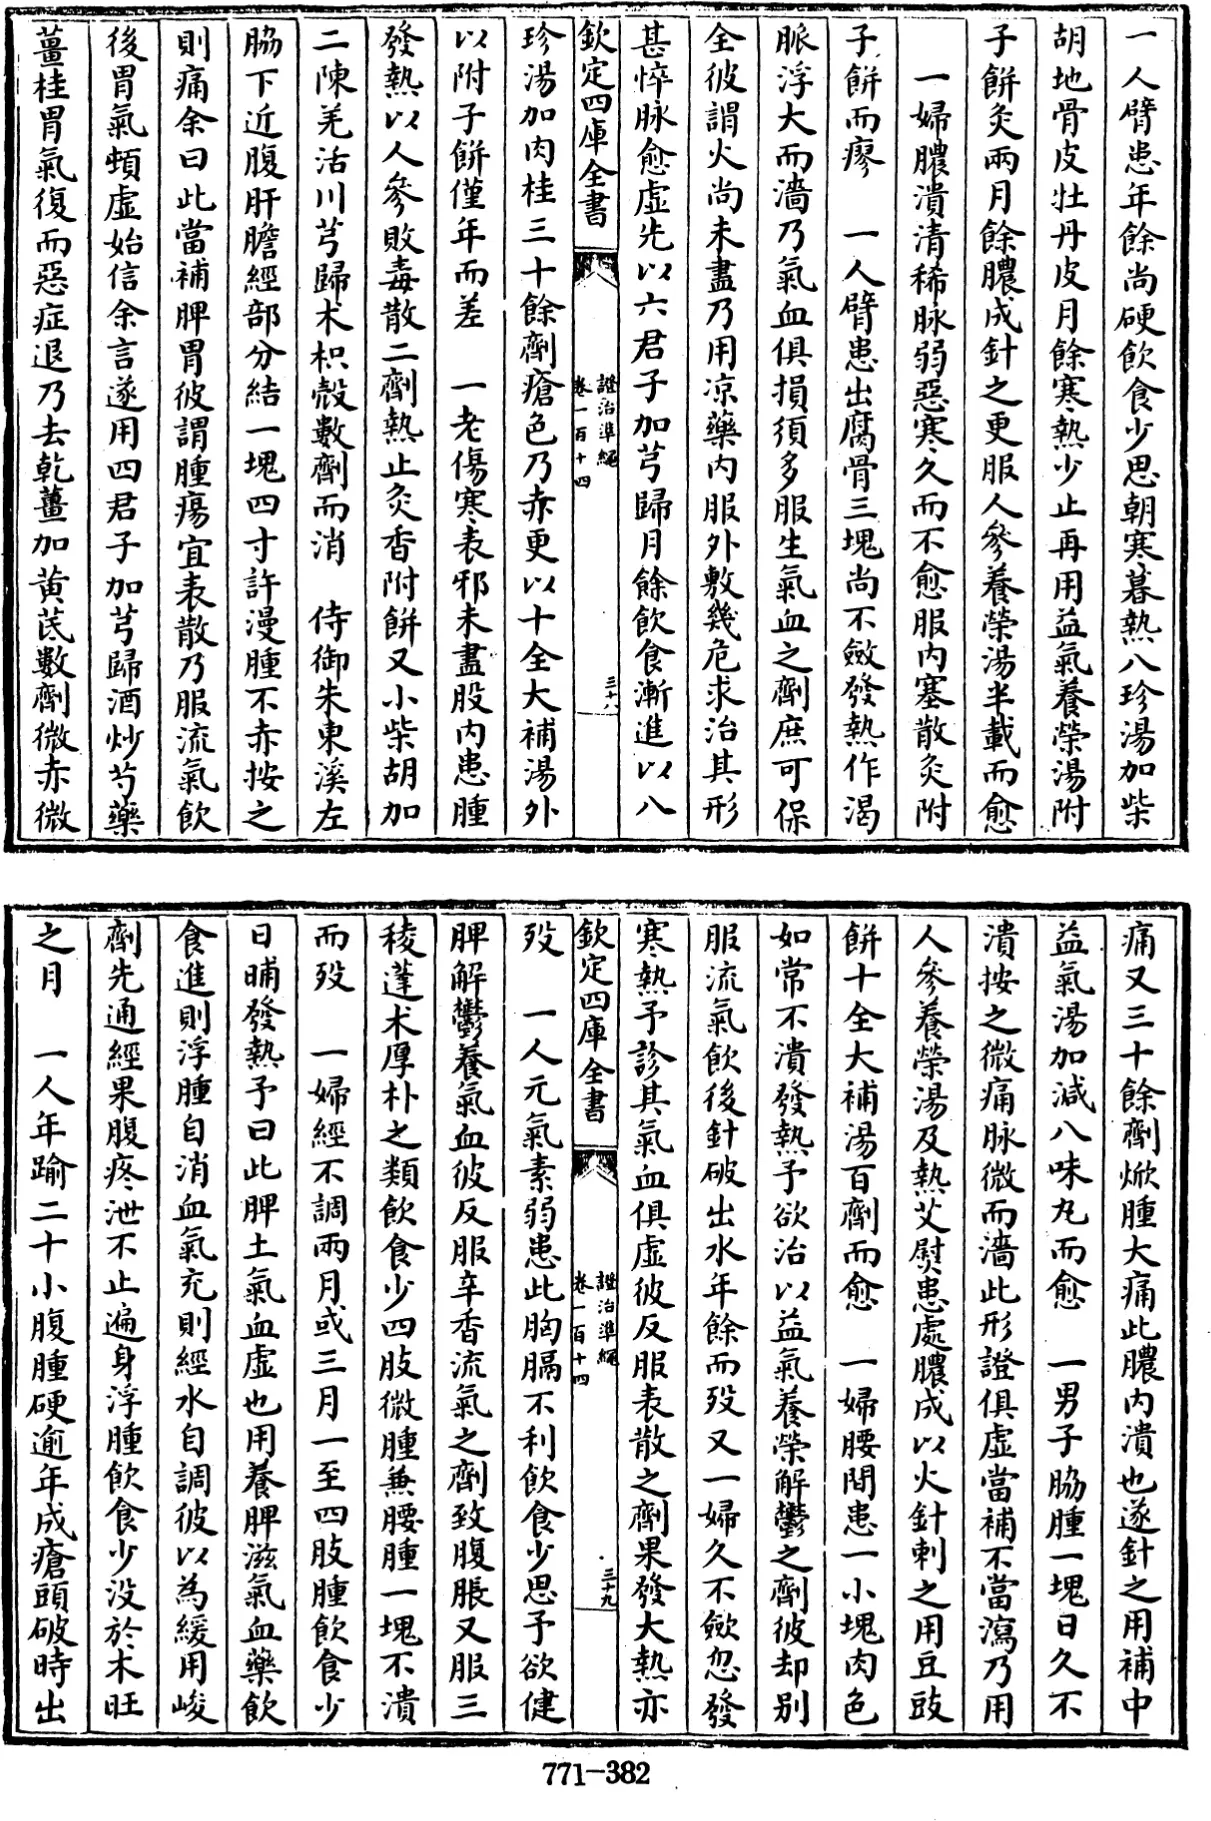 一人臂患年餘尚硬飲食少思朝寒暮熱八珍湯加柴
胡地骨皮牡丹皮月餘寒熱少止再用益氣養榮湯附
子餅灸兩月餘膿成針之更服人參養榮湯半載而愈
一婦膿潰清稀脉弱惡寒久而不愈服内塞散灸附
子餅而瘳　一人臂患出腐骨三塊尚不斂發熱作渴
脈浮大而濇乃氣血俱損須多服生氣血之劑庶可保
全彼謂火尚未盡乃用凉藥内服外敷幾危求治其形
甚悴脉愈虛先以六君子加芎歸月餘飲食漸進以八
欽定四庫全書
證治準繩
卷一百十四
三十八
珍湯加肉桂三十餘劑瘡色乃赤更以十全大補湯外
以附子餅僅年而差　一老傷寒表邪未盡股内患腫
發熱以人參敗毒散二劑熱止灸香附餅又小柴胡加
二陳羌活川芎歸术枳殻數劑而消　侍御朱東溪左
脇下近腹肝膽經部分結一塊四寸許漫腫不赤按之
則痛余曰此當補脾胃彼謂腫瘍宜表散乃服流氣飲
後胃氣頓虛始信余言遂用四君子加芎歸酒炒芍藥
薑桂胃氣復而惡症退乃去乾薑加黄芪數劑微赤微
痛又三十餘劑焮腫大痛此膿内潰也遂針之用補中
益氣湯加減八味丸而愈　一男子脇腫一塊日久不
潰按之微痛脉微而濇此形證俱虛當補不當瀉乃用
人參養榮湯及熱艾熨患處膿成以火針刺之用豆豉
餅十全大補湯百劑而愈　一婦腰間患一小塊肉色
如常不潰發熱予欲治以益氣養榮解鬱之劑彼却別
服流氣飲後針破出水年餘而歿又一婦久不斂忽發
寒熱予診其氣血俱虛彼反服表散之劑果發大熱亦
欽定四庫全書
證治準繩
卷一百十四
三十九
歿　一人元氣素弱患此胸膈不利飲食少思予欲健
脾解鬱養氣血彼反服辛香流氣之劑致腹脹又服三
稜蓬术厚朴之類飲食少四肢微腫兼腰腫一塊不潰
而歿　一婦經不調兩月或三月一至四肢腫飲食少
日晡發熱予曰此脾土氣血虛也用養脾滋氣血藥飲
食進則浮腫自消血氣充則經水自調彼以為緩用峻
劑先通經果腹疼泄不止遍身浮腫飲食少没於木旺
之月　一人年踰二十小腹腫硬逾年成瘡頭破時出
771-382